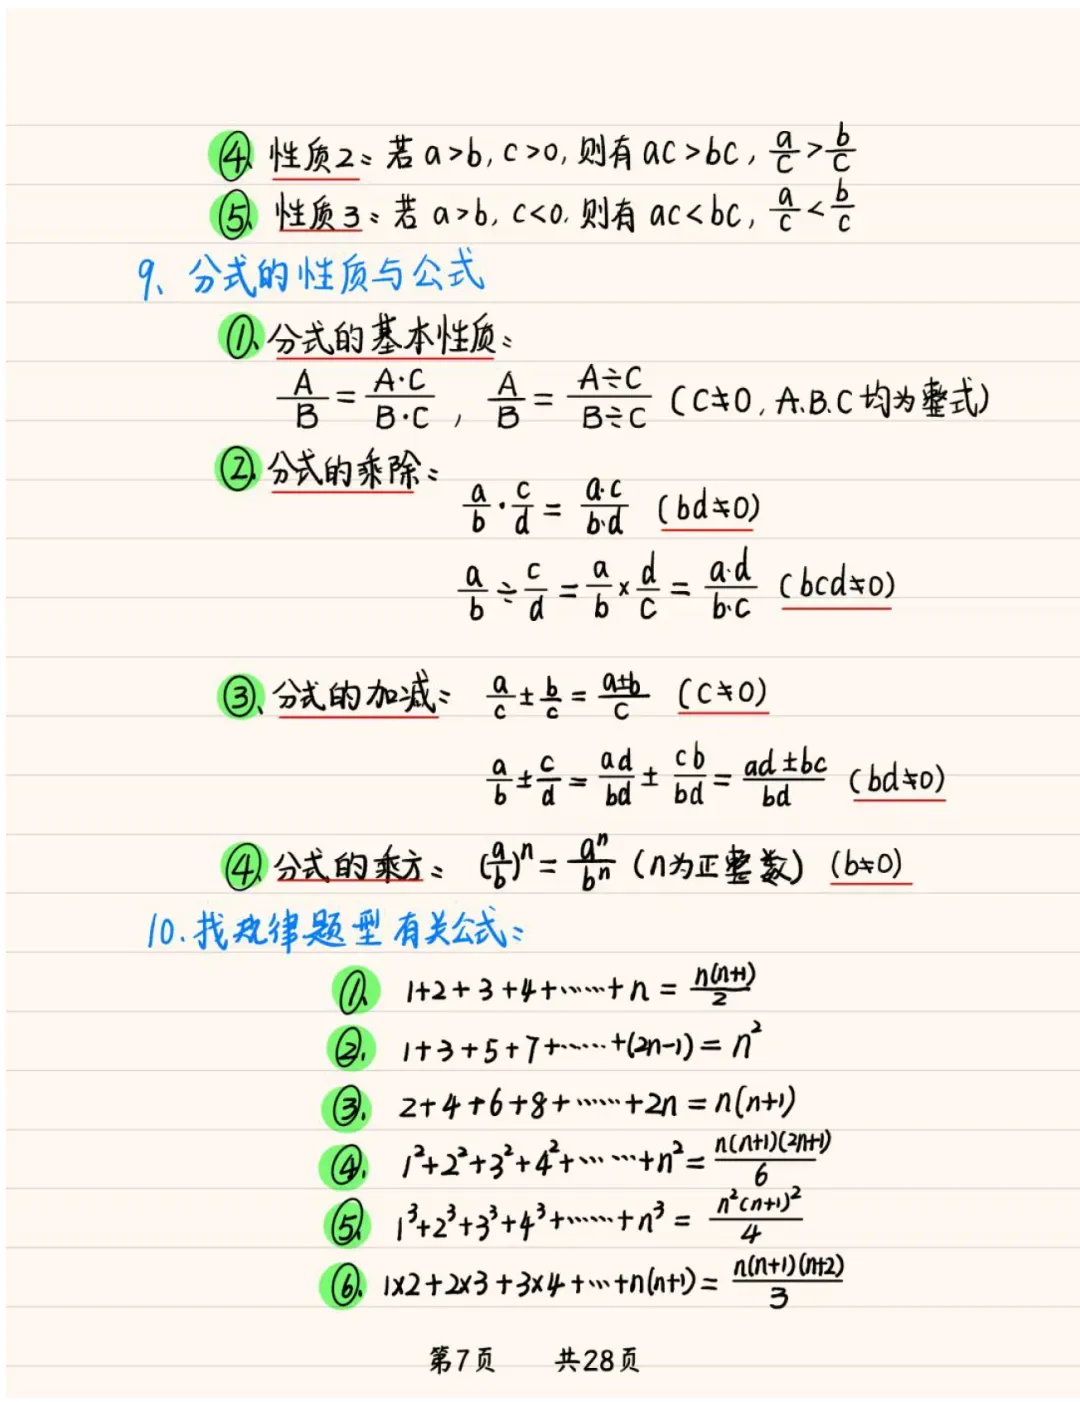 ④、性质2：若 a>b, c>0, 则有 ac>bc, a/c > b/c
⑤、性质3：若 a>b, c<0, 则有 ac<bc, a/c < b/c
9、分式的性质与公式
①、分式的基本性质：
A/B = A·C/B·C , A/B = A÷C/B÷C (C≠0, A.B.C 均为整式)
②、分式的乘除：
a/b · c/d = a·c/b·d (bd≠0)
a/b ÷ c/d = a/b × d/c = a·d/b·c (bcd≠0)
③、分式的加减： a/c ± b/c = a±b/c (c≠0)
a/b ± c/d = ad/bd ± cb/bd = ad±bc/bd (bd≠0)
④、分式的乘方： (a/b)ⁿ = aⁿ/bⁿ (n为正整数) (b≠0)
10.找规律题型有关公式：
①、 1+2+3+4+……+n = n(n+1)/2
②. 1+3+5+7+……+(2n-1) = n²
③. 2+4+6+8+……+2n = n(n+1)
④. 1²+2²+3²+4²+……+n² = n(n+1)(2n+1)/6
⑤. 1³+2³+3³+4³+……+n³ = n²(n+1)²/4
⑥. 1×2+2×3+3×4+…+n(n+1) = n(n+1)(n+2)/3
第7页 共28页